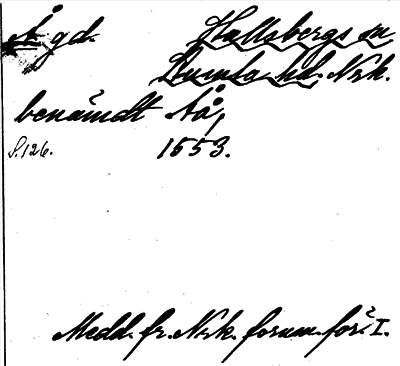 Å gd. Hallsbergs sn
Kumla hd. Nrk.
benämdt Åå,
S. 126. 1653.
Medd. fr. Nrk. fornm. för. I.